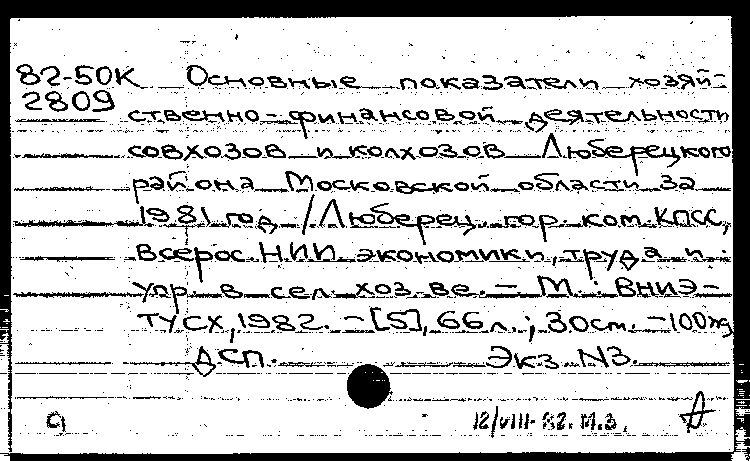 82-50К Основные показатели хозяй-
2809 ственно-финансовой деятельности
совхозов и колхозов Люберецкого
района Московской области за
1981 год / Люберец. гор. ком. КПСС,
Всерос. НИИ экономики, труда и
упр. в сел. хоз-ве. – М. : ВНИЭ-
ТУСХ, 1982. – [5], 66 л. ; 30 см. – 100 экз
ДСП. Экз. N3.
12/VIII-82. М.З.